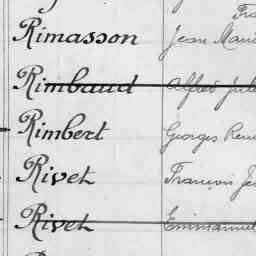 Rimasson Jean
Rimbaud Alfred
Rimbert Georges
Rivet François
Rivet Emmanuel